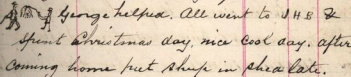 George helped. All went to J H B &
spent Christmas day, nice cool day. after
coming home put sheep in shed late.